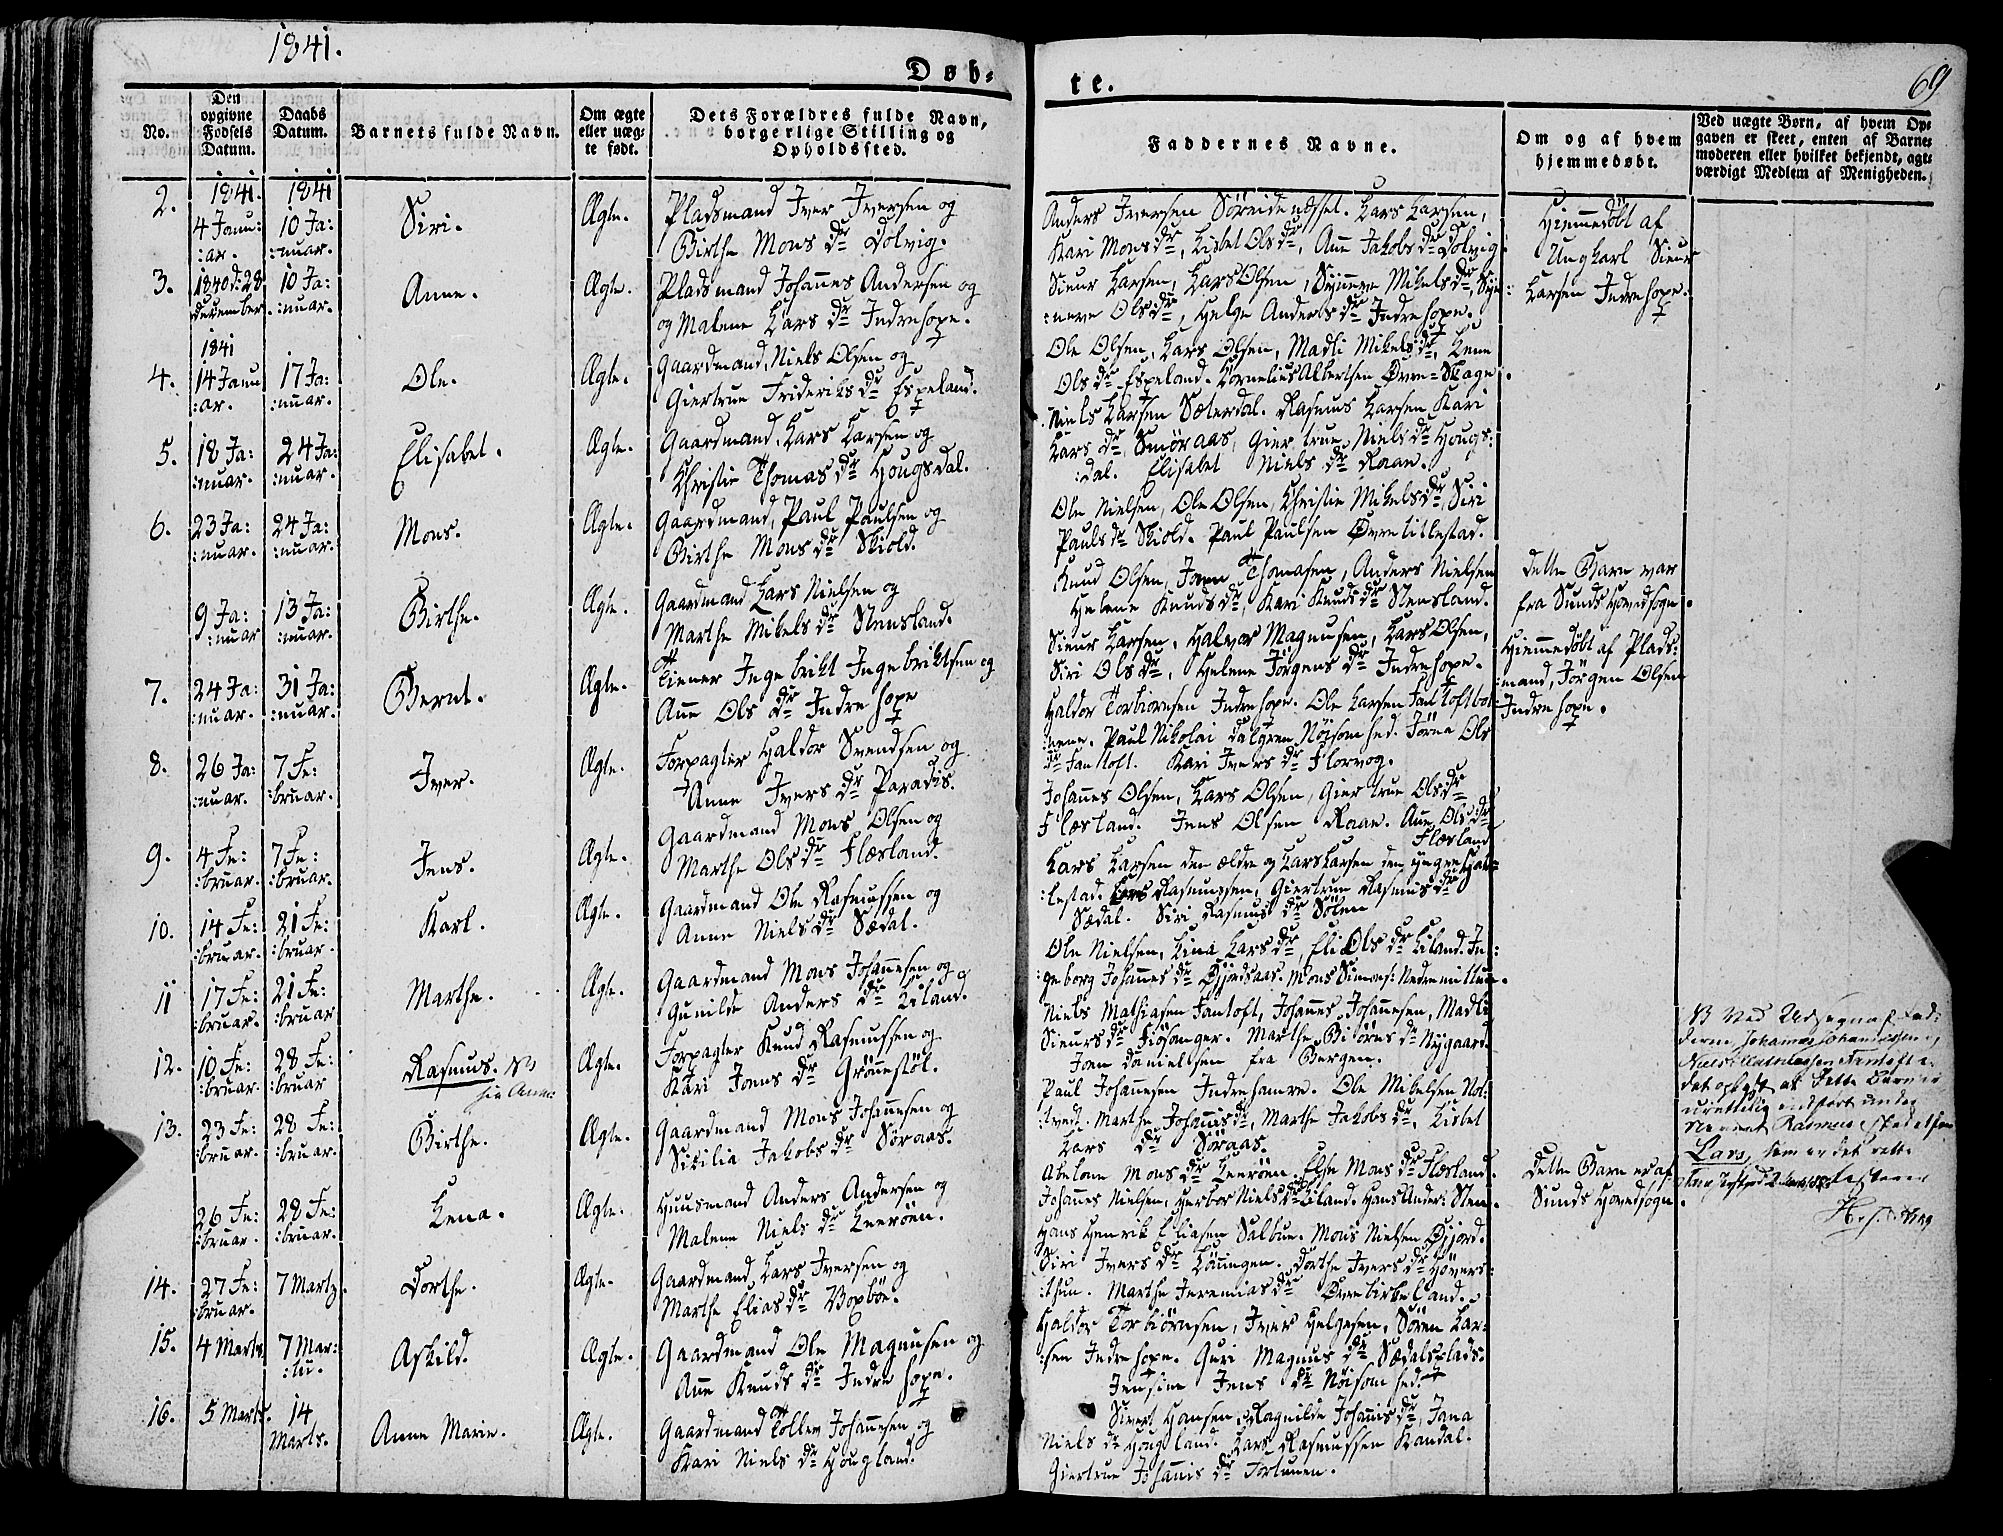 1841.
Døb-
te.
69
No.
Den
opgivne
Fødsels
Datum.
Daabs
Datum.
Barnets fulde Navn.
Om ægte
eller uæg-
te født.
Dets Forældres fulde Navn,
borgerlige Stilling og
Opholdssted.
Faddernes Navne.
Om og af hvem
hjemmedøbt.
Ved uægte Børn, af hvem Op-
gaven er skeet, enten af Barne-
moderen eller hvilket bekjendt, agt-
værdigt Medlem af Menigheden.
2.
1841.
4 Janu:
:ar.
1841
10 Ja:
:nuar.
Siri.
Ægte.
Pladsmand Iver Iversen og
Birthe Mons dr Dolvig.
Anders Iversen Söreidenesset. Lars Larsen,
Kari Mons dr, Lisbet Ols dr, Ane Jakobs dr Dolvig.
Hiemmedöbt af
Ungkarl Siur
Larsen Indrehope.
3.
1840 d: 28
december.
10 Ja:
:nuar.
Anne.
Ægte.
Pladsmand Johannes Andersen og
og Malene Lars dr Indrehope.
Siur Larsen, Lars Olsen, Synneve Mikels dr, Syn:
:neve Ols dr, Helge Anders dr Indrehope.
4.
1841
14 Janu
:ar.
17 Ja:
:nuar.
Ole.
Ægte.
Gaardmand, Niels Olsen og
Giertrue Frideriks dr Espeland.
Ole Olsen, Lars Olsen, Madli Mikels dr, Lene
Ols dr Espeland. Kornelius Albertsen Övre-Skage.
5.
18 Ja:
:nuar.
24 Ja:
:nuar.
Elisabet.
Ægte.
Gaardmand, Lars Larsen og
Christie Thomas dr Hougsdal.
Niels Larsen Sæterdal. Rasmus Larsen, Kari
Lars dr Smöraas, Giertrue Niels dr Hougs:
:dal. Elisabet Niels dr Raae.
6.
23 Ja:
:nuar.
24 Ja:
:nuar.
Mons.
Ægte.
Gaardmand, Paul Paulsen og
Birthe Mons dr Skiold.
Ole Nielsen, Ole Olsen, Christie Mikels dr, Siri
Pauls dr Skiold. Paul Paulsen Övretitlestad.
9 Ja:
:nuar
13 Ja:
:nuar.
Birthe.
Ægte.
Gaardmand Lars Nielsen og
Marthe Mikels dr Stensland.
Knud Olsen, Joen Thomasen, Anders Nielsen
Helene Knuds dr, Kari Knuds dr Stensland.
Dette Barn var
fra Sunds Hovedsogn.
7.
24 Ja:
:nuar.
31 Ja:
:nuar.
Bernt.
Ægte.
Tiener Ingebrikt Ingebriktsen og
Ane Ols dr Indrehope
Siur Larsen, Halvor Magnusen, Lars Olsen,
Siri Ols dr, Helene Jörgens dr Indrehope.
Hiemmedöbt af Plads:
:mand, Jörgen Olsen
Indrehope.
8.
26 Ja:
:nuar.
7 Fe:
:bruar.
Iver.
Ægte.
Forpagter Haldor Svendsen og
Anne Ivers dr Paradis.
Haldor Torbiörnsen Indrehope. Ole Larsen Fantoftbot:
:nene. Paul Nikolai Dalgren Nöisomhed. Jörna Ols
dr Fantoft. Kari Ivers dr Florvog.
9.
4 Fe:
:bruar.
7 Fe:
:bruar.
Jens.
Ægte.
Gaardmand Mons Olsen og
Marthe Ols dr Flæsland.
Johannes Olsen, Lars Olsen, Giertrue Ols dr
Flæsland. Jens Olsen Raae. Ane Ols dr
Flæsland
10.
14 Fe:
:bruar.
21 Fe:
:bruar.
Karl.
Ægte.
Gaardmand Ole Rasmussen og
Anne Niels dr Sædal.
Lars Larsen den ældre og Lars Larsen den yngre
:lestad. Rasmussen, Giertrue Rasmus dr
Sædal. Siri Rasmus dr Sölen
11
17 Fe:
:bruar.
21 Fe:
:bruar
Marthe.
Ægte.
Gaardmand Mons Johannesen og
Gunilde Anders dr Liland.
Ole Nielsen, Lina Lars dr, Eli Ols dr Liland. In:
:geborg Johannes dr Öjordsaas. Mons Simons: Nedremittun.
12.
10 Fe:
:bruar.
28 Fe:
:bruar
Rasmus. NB
Ægte.
Forpagter Knud Rasmussen og
Kari Joens dr Grönestöl.
Niels Mathiasen Fantoft, Johannes Johannesen, Madli
Siurs dr Fiösanger. Marthe Biörns dr Nygaard.
Joen Danielsen fra Bergen.
NB Ved Udsagn af Fad:
derne, Johannes Johannessen,
Niels Mathiassen Fantoft er
det oplyst at dette Barn er
urettelig indfört under
Navnet Rasmus,
Lars, som er det rette
13.
23 Fe:
:bruar.
28 Fe:
:bruar.
Birthe.
Ægte.
Gaardmand Mons Johannesen og
Sikilia Jakobs dr Söraas.
Paul Johannesen Indrehamre. Ole Mikelsen Nöt:
:tved. Marthe Johannis dr, Marthe Jakobs dr, Lisbet
Lars dr Söraas.
26 Fe:
:bruar.
28 Fe:
:bruar.
Lena.
Ægte.
Huusmand Anders Andersen og
Malene Niels dr Leeröen.
Abelone Mons dr Leeröen. Else Mons dr Flæsland.
Johannes Nielsen, Herbor Niels dr Liland. Hans Anders: Sten.
Dette Barn er af
Sunds Hovedsogn.
14.
27 Fe:
:bruar.
7 Marts.
Dorthe.
Ægte.
Gaardmand, Lars Iversen og
Marthe Elias dr Vopböe.
Hans Henrik Eliasen Salbue. Mons Nielsen Öjord.
Siri Ivers dr Löningen. Dorthe Ivers dr Hövers:
:thun. Marthe Jeremias dr Övrebirkeland.
15.
4 Marts
7 Mar:
:ts.
Askild.
Ægte.
Gaardmand Ole Magnusen og
Ane Knuds dr Indrehope.
Haldor Torbiörnsen, Iver Helgesen, Sören Lar:
:sen Indrehope. Guri Magnus dr Sædalsplads.
Jensine Jens dr Nöisomhed.
16.
5 Marts.
14
Marts.
Anne Marie.
Ægte.
Gaardmand Tollev Johannesen og
Kari Niels dr Hougland.
Sivert Hansen, Ragnilde Johannis dr, Jana
Niels dr Hougland. Lars Rasmussen Kandal.
Giertrue Johannis dr Tortunen.